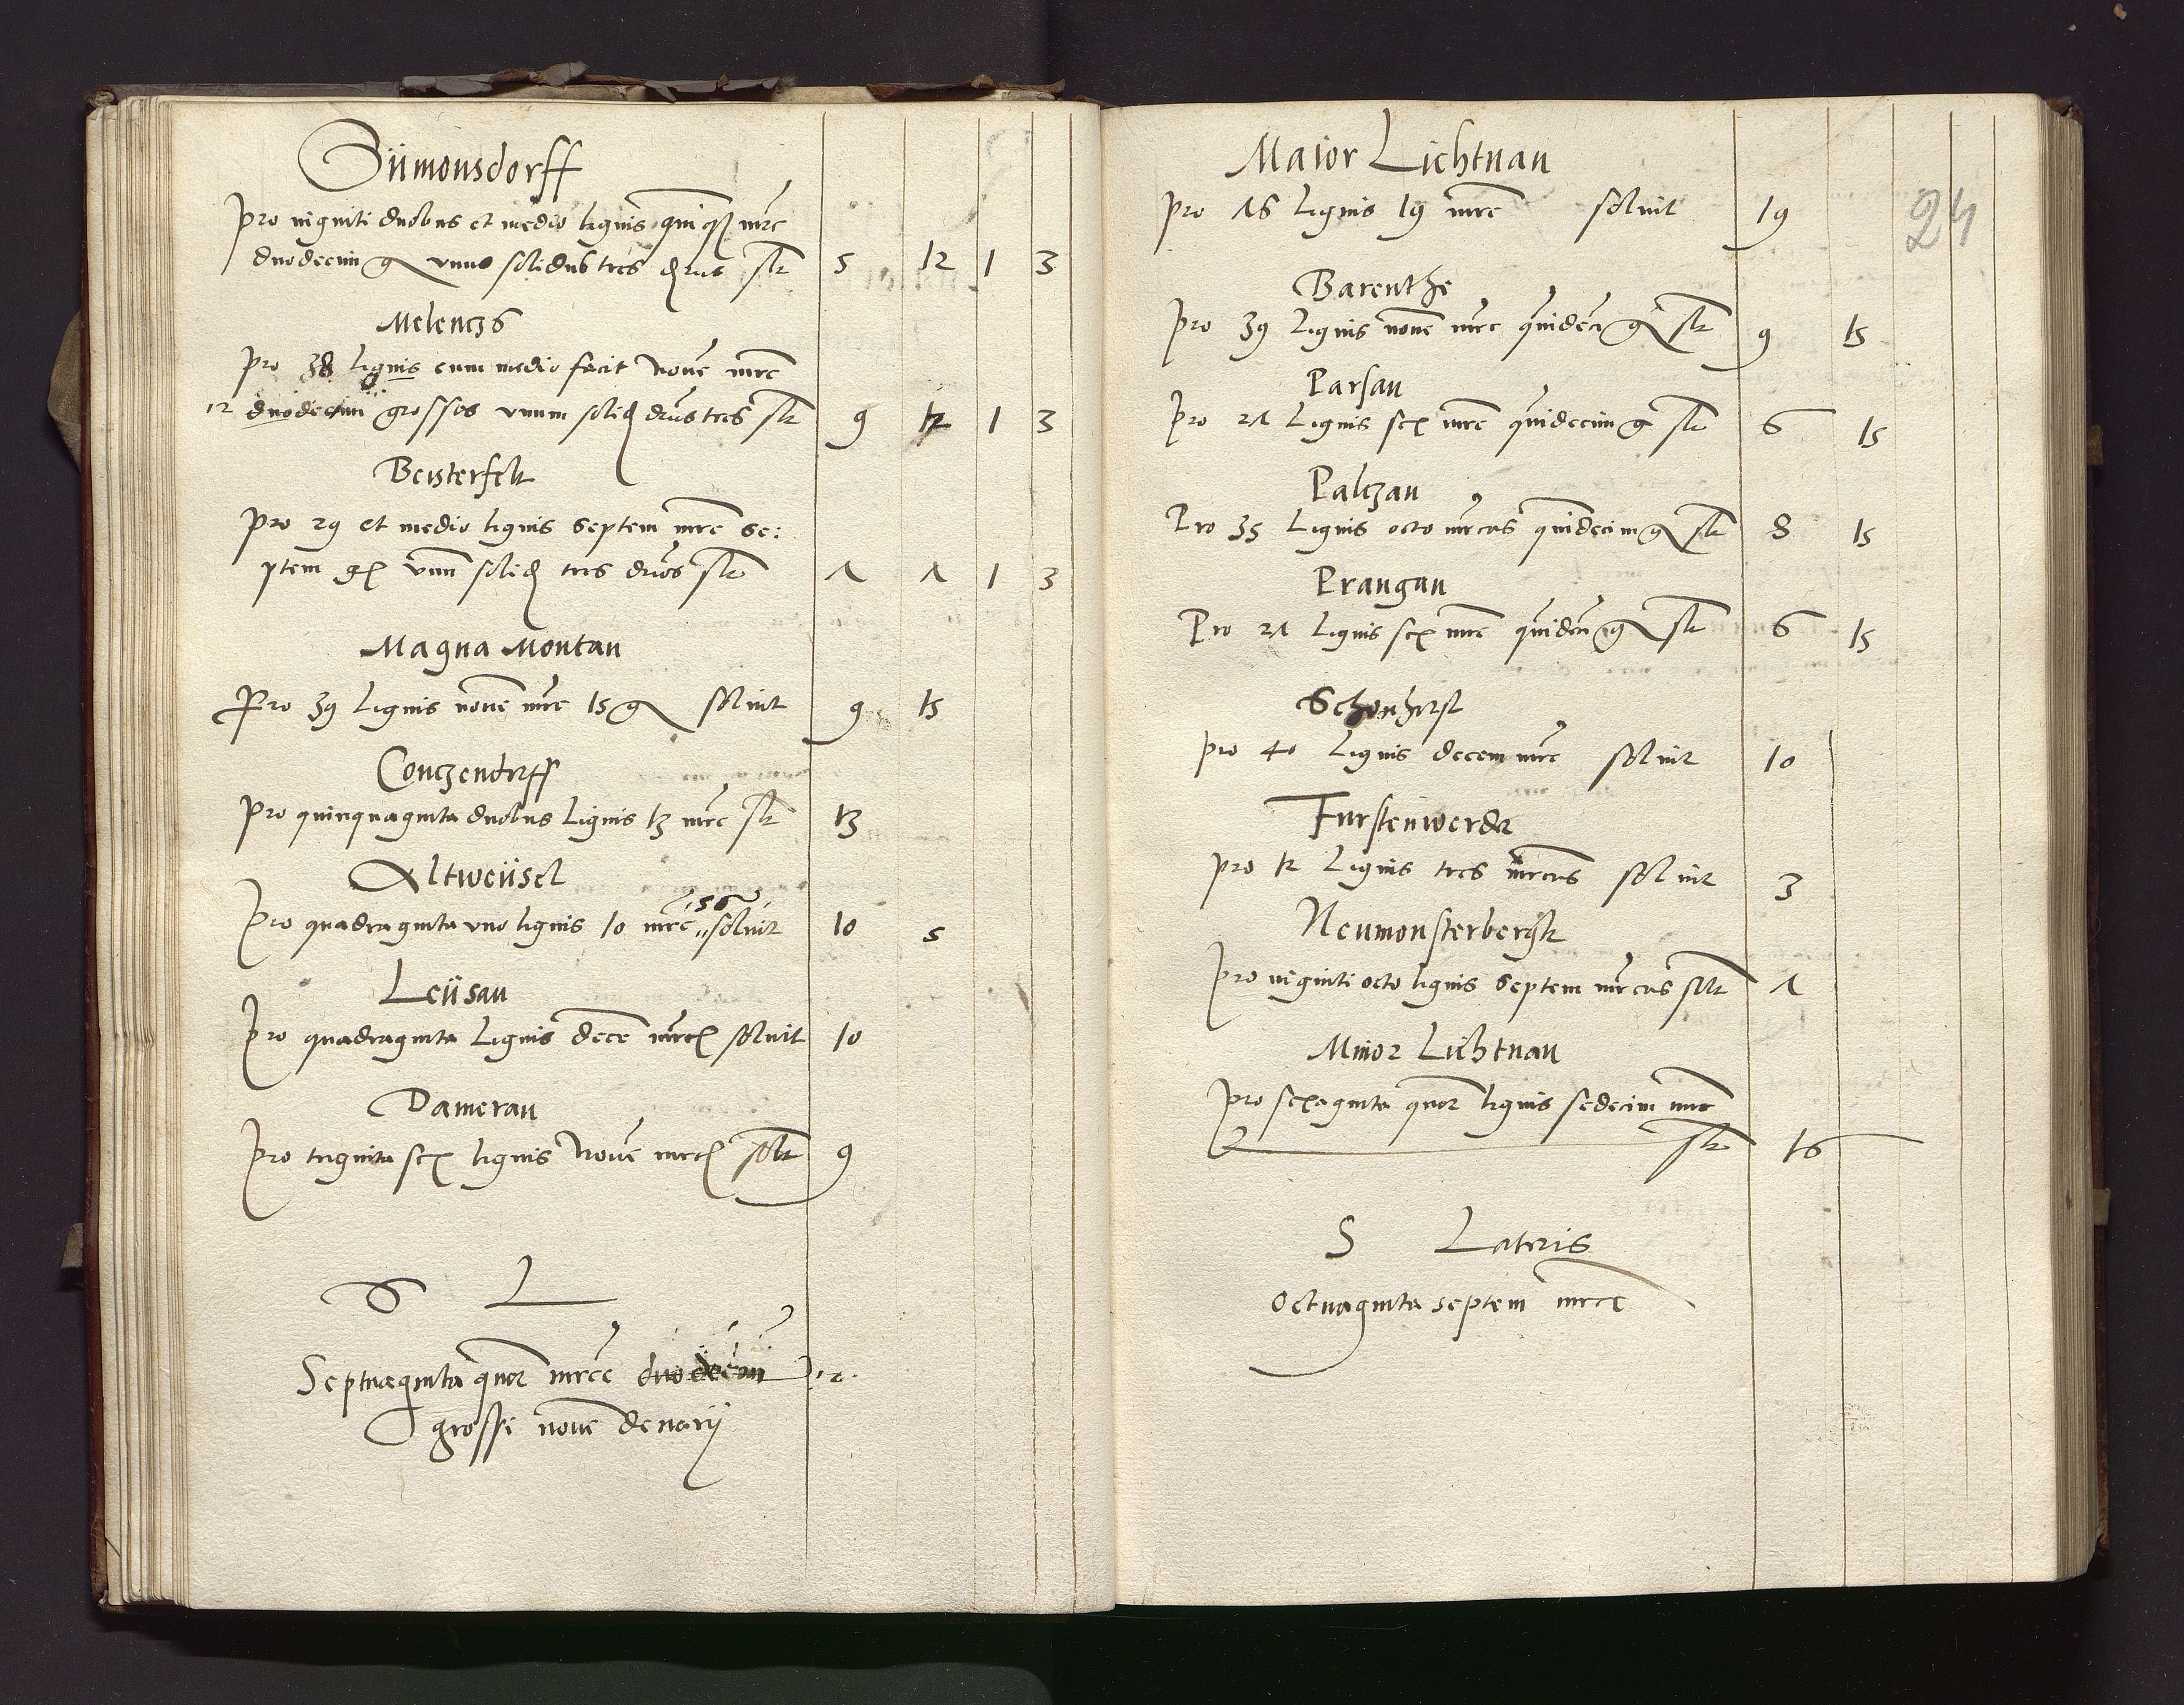 Siimonsdorff
pro viginti duobus et medio lignis quinqz mrc
duodecim g unus solidus tres drus slt 5 12 1 3
Melenczs
pro 38 lignis cum medio facit nove mrc
12 duodecim grossos unum solid drus tres slt 9 12 1 3
Beisterfelt
pro 29 et medio lignis septem mrc se:
ptem g unu solid tres drus slt 7 7 1 3
Magna Montau
Pro 39 lignis nove mrc 15 g solvit 9 15
Conczendorff
pro quinquaginta duobus lignis 13 mrc slt 13
Altweüsel
5 g
pro quadraginta uno lignis 10 mrc solvit 10 5
Leiisau
pro quadraginta lignis dece mrc solvit 10
Damerau
pro triginta sex lignis nove mrc solt 9
S L
Septuaginta quor mrce duodecim 12
grossi nove denarij
24
Maior Lichtnau
pro 76 lignis 19 mrc solvit 19
Barenthe
pro 39 lignis nove mrc quideci g slt 9 15
Parsau
pro 27 lignis sex mrc quidecim g slt 6 15
Palczau
Pro 35 lignis octo mrcas quidecim g slt 8 15
Prangau
Pro 27 lignis sex mrc quideci g slt 6 15
Schonhorst
pro 40 lignis decem mrc solvit 10
Furstenwerder
pro 12 lignis tres mrcas solvit 3
Neumonsterbergk
pro viginti octo lignis septem mrcas solt 7
Minor Lichtnau
pro sexaginta quor lignis sedecim mrc
slt 16
S Lateris
octuaginta septem mrce